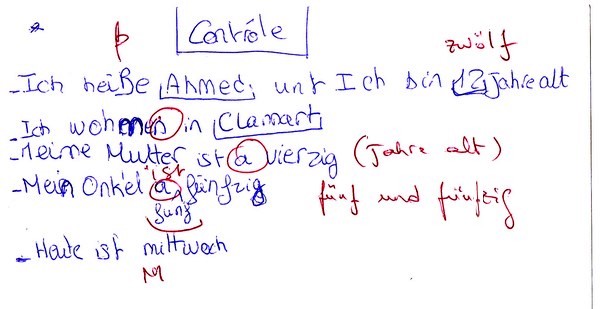 β Contrôle
zwölf
- Ich heiße Ahmed, unt Ich bin 12 jahre alt
- Ich wohnen in Clamart
- Meine Mutter ist a vierzig (Jahre alt)
ist
- Mein Onkel a fünfzig fünf und fünfzig
fünf
- Heute ist mittwoch
M